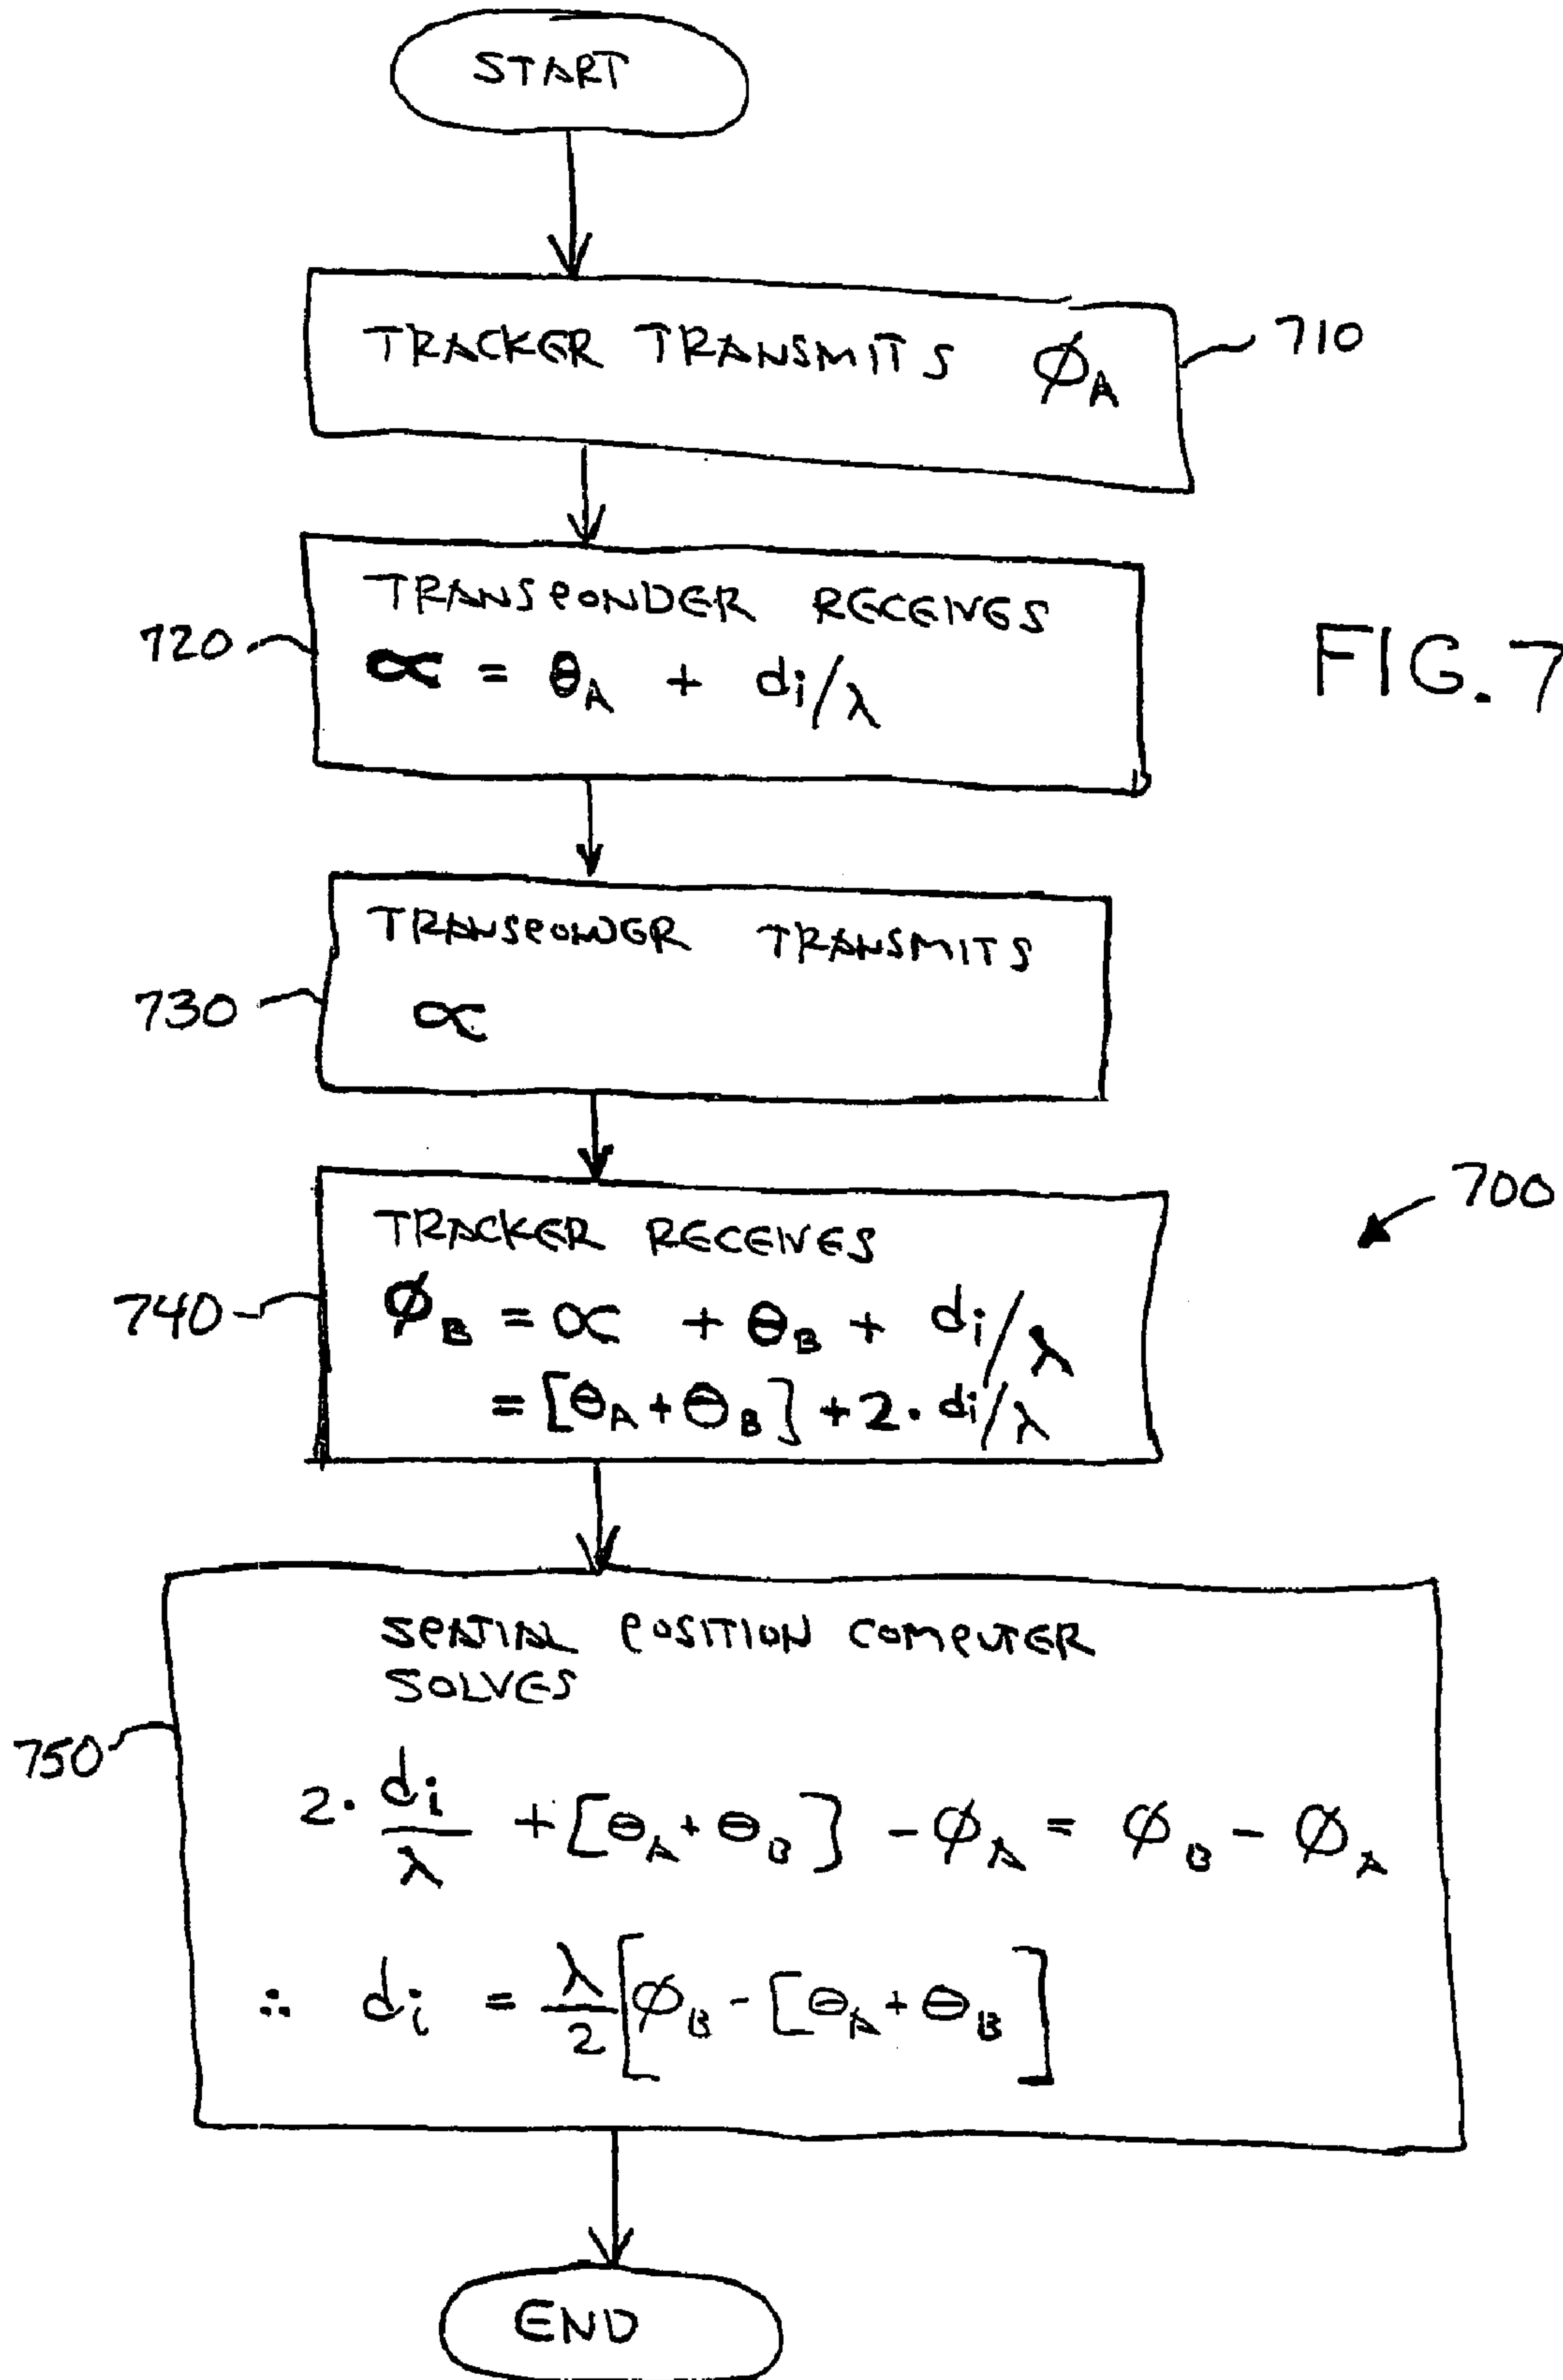 START
TRACKER TRANSMITS ϕ_A
710
TRANSPONDER RECEIVES
∝ = θ_A + d_i/λ
720
FIG. 7
TRANSPONDER TRANSMITS
∝
730
700
TRACKER RECEIVES
ϕ_B = ∝ + θ_B + d_i/λ
= [θ_A + θ_B] + 2 · d_i/λ
740
SPATIAL POSITION COMPUTER
SOLVES
2 · d_i/λ + [θ_A + θ_B] - ϕ_A = ϕ_B - ϕ_A
∴ d_i = λ/2 [ϕ_B - [θ_A + θ_B]
750
END